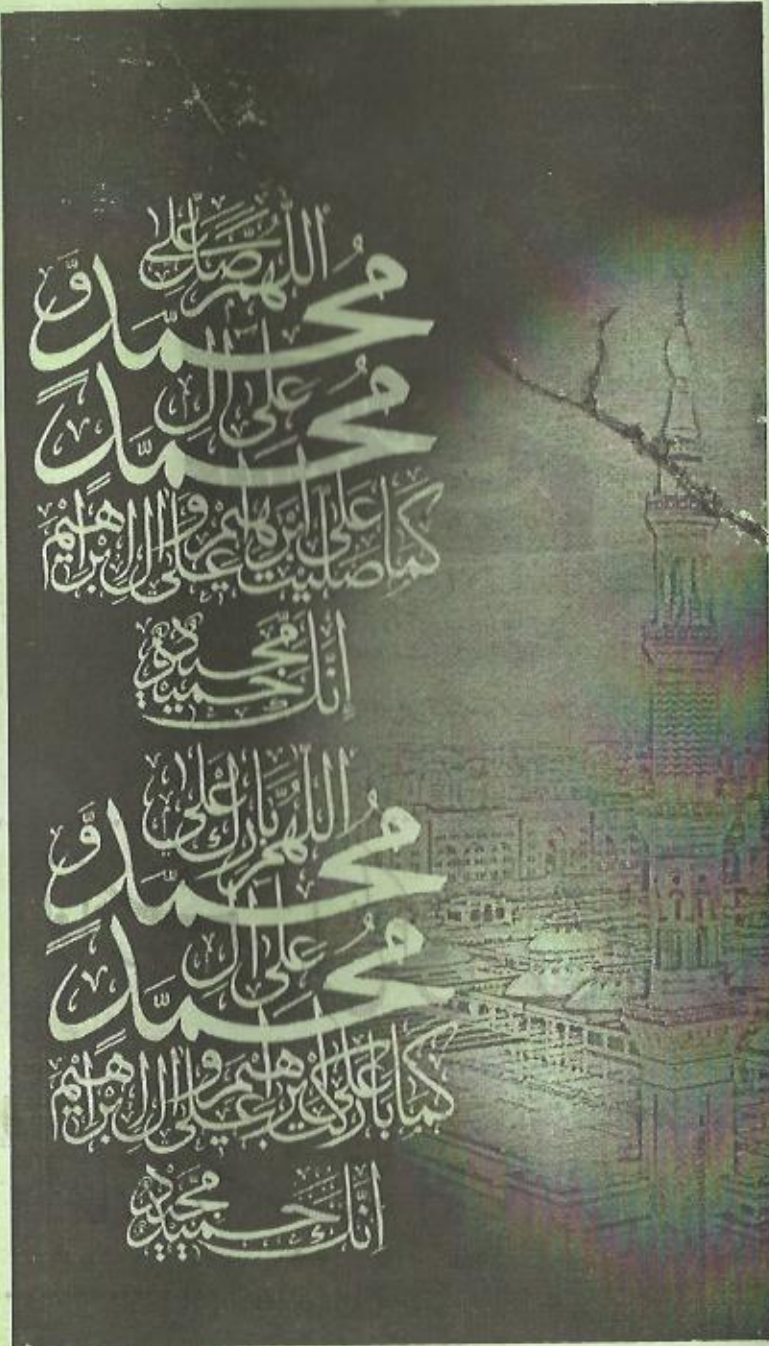 اللّٰهُمَّ صَلِّ عَلٰی
مُحَمَّدٍ وَّ
عَلٰی اٰلِ
مُحَمَّدٍ
كَمَا صَلَّيْتَ عَلٰی اِبْرَاهِيْمَ وَ عَلٰی اٰلِ اِبْرَاهِيْمَ
اِنَّكَ حَمِيْدٌ مَّجِيْدٌ
اللّٰهُمَّ بَارِكْ عَلٰی
مُحَمَّدٍ وَّ
عَلٰی اٰلِ
مُحَمَّدٍ
كَمَا بَارَكْتَ عَلٰی اِبْرَاهِيْمَ وَ عَلٰی اٰلِ اِبْرَاهِيْمَ
اِنَّكَ حَمِيْدٌ مَّجِيْدٌ